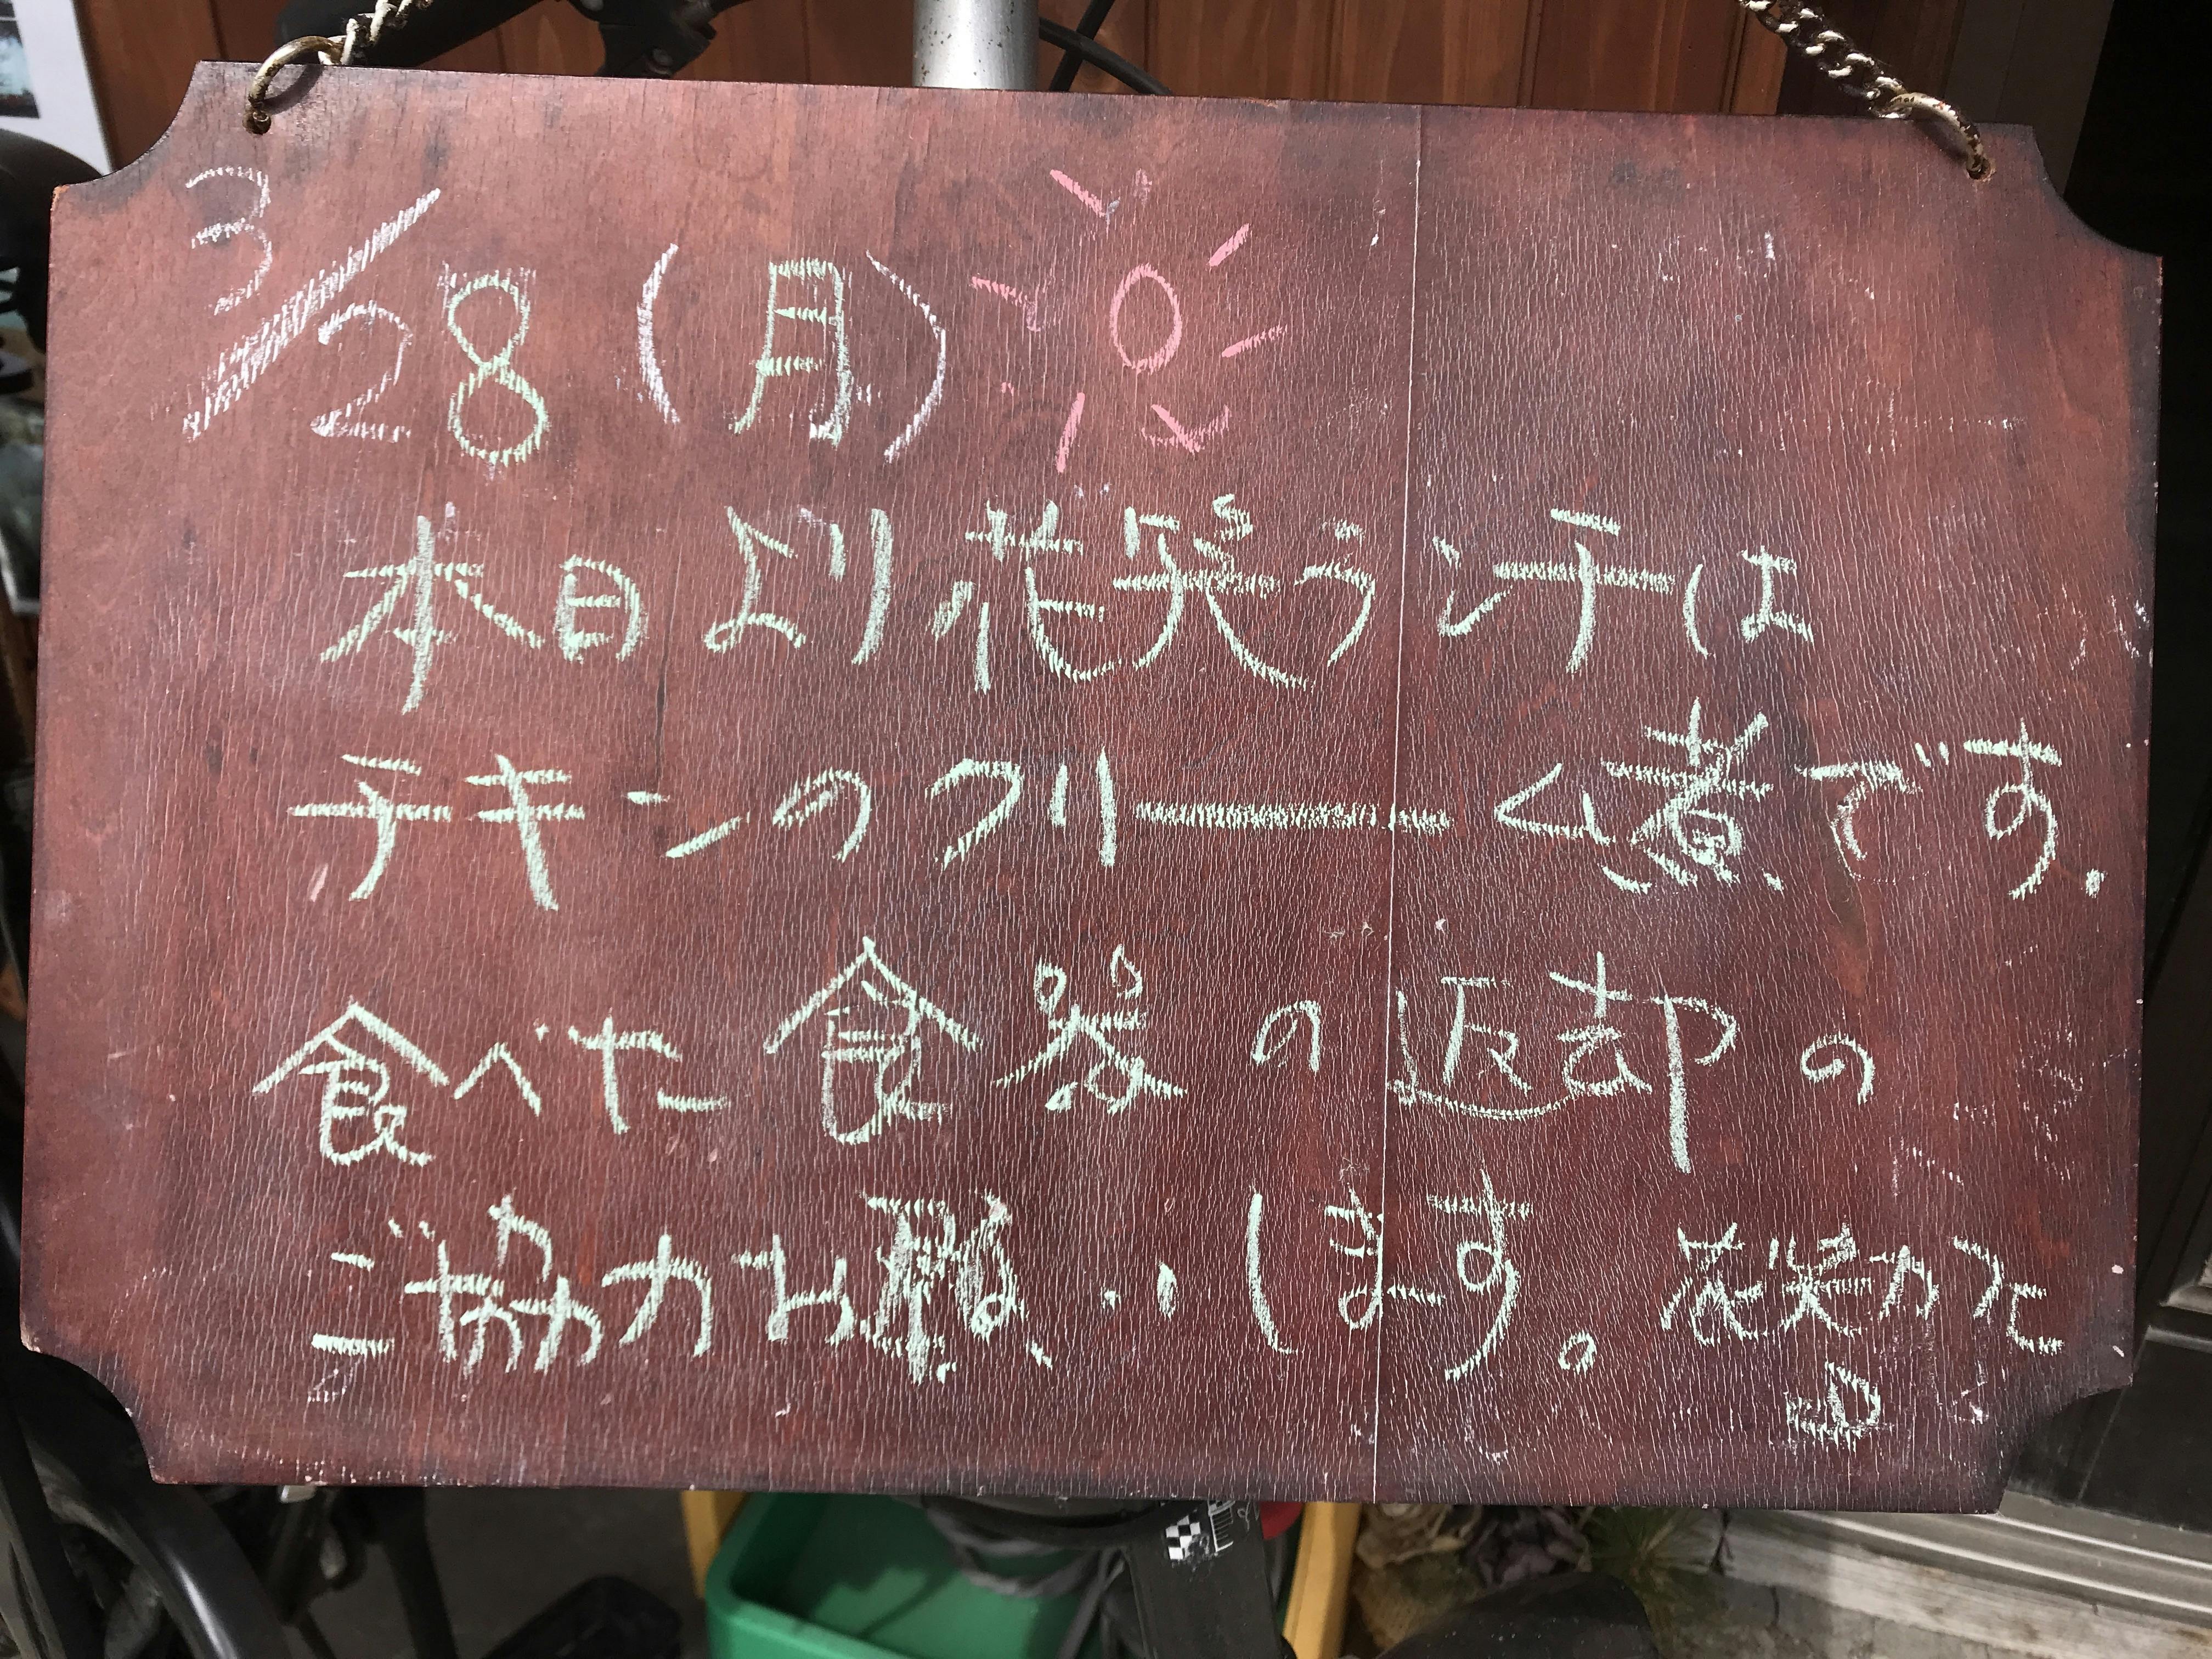 3/28(月)
本日より花笑ランチは
チキンのクリーム煮です.
食べた食器の返却の
ご協力お願いします。花笑かた